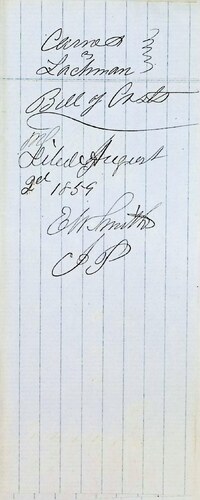 Carnes
&
Lachman
Bill of Costs
Filed August
2d 1859
E W Smith
J P